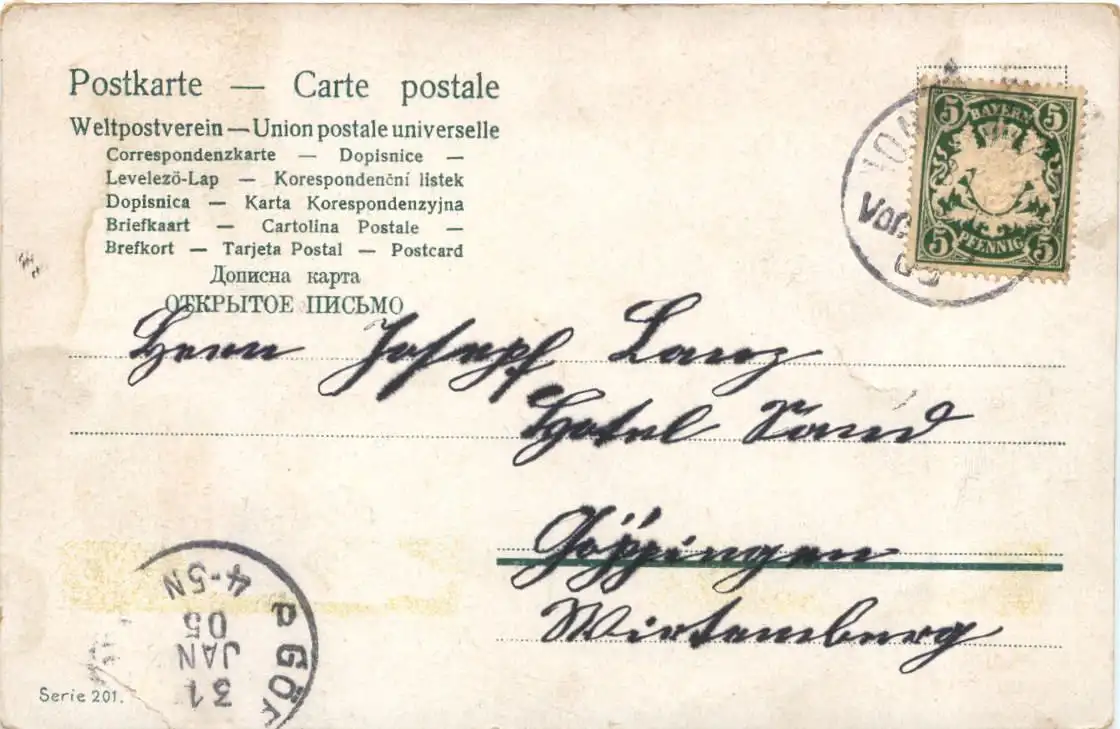 Postkarte — Carte postale
Weltpostverein — Union postale universelle
Correspondenzkarte — Dopisnice —
Levelező-Lap — Korespondenční listek
Dopisnica — Karta Korespondenzyjna
Briefkaart — Cartolina Postale —
Brefkort — Tarjeta Postal — Postcard
Дописна карта
ОТКРЫТОЕ ПИСЬМО
5 BAYERN 5
5 PFENNIG 5
Vor
05
Herrn Josepf Lanz
Hotel Sand
Göppingen
Wirtemberg
GÖP
31
JAN
05
4-5N
Serie 201.